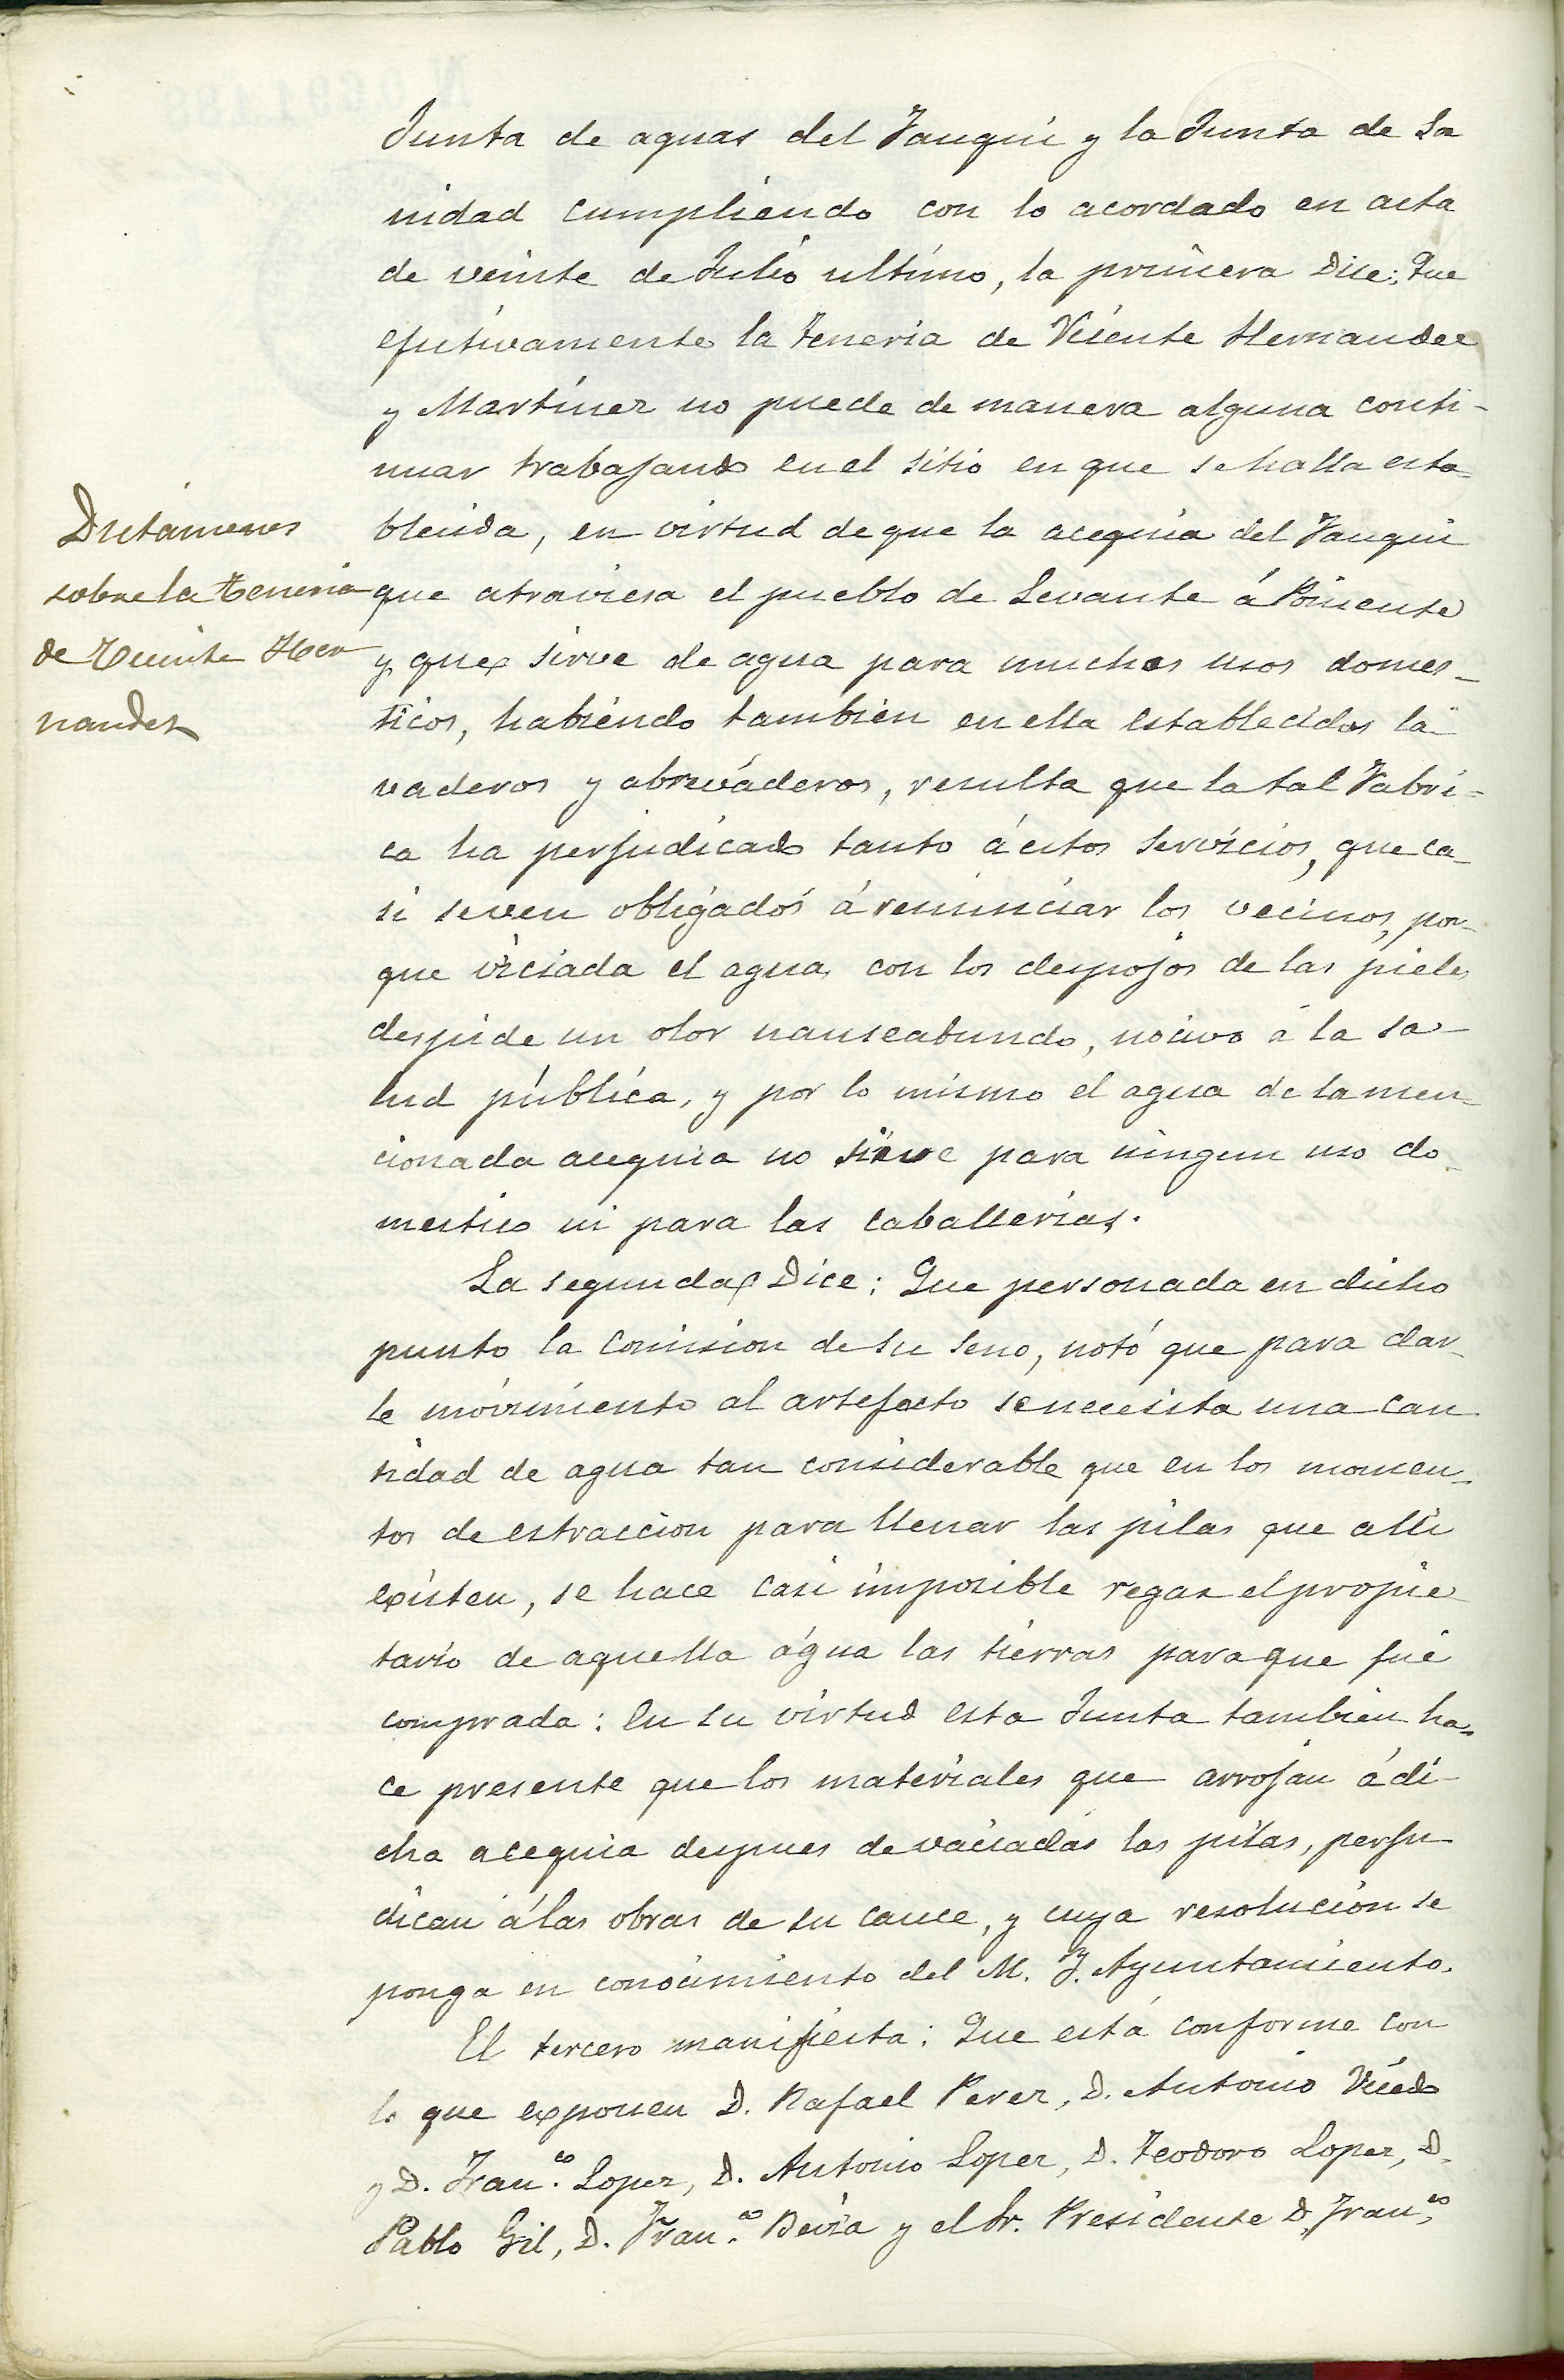 Junta de aguas del Fauquí y la Junta de Sa
nidad cumpliendo con lo acordado en acta
de veinte de Julio ultimo, la primera Dice: Que
efectivamente la teneria de Vicente Hernandez
y Martinez no puede de manera alguna conti-
nuar trabajando en el sitio en que se halla esta
blecida, en virtud de que la acequia del Fauqui
Dictámenes
sobre la teneria
de Vicente Her
nandez
que atraviesa el pueblo de Levante á Poniente
y que sirve de agua para muchos usos domes-
ticos, habiendo tambien en ella establecidos la-
vaderos y abrevaderos, resulta que la tal Fabri-
ca ha perjudicado tanto á estos servicios, que ca-
si se ven obligados á renunciar los vecinos, por-
que viciada el agua con los despojos de las pieles
despide un olor nauseabundo, nocivo á la sa-
lud pública, y por lo mismo el agua de la men-
cionada acequia no sirve para ningun uso do-
mestico ni para las caballerias.
La segunda Dice: Que personada en dicho
punto la Comision de su seno, notó que para dar-
le movimiento al artefacto se necesita una can
tidad de agua tan considerable que en los momen-
tos de estraccion para llenar las pilas que alli
existen, se hace casi imposible regar el propie
tario de aquella agua las tierras para que fué
comprada: En su virtud esta Junta tambien ha-
ce presente que los materiales que arrojan á di-
cha acequia despues de vaciadas las pilas, perju
dican á las obras de su cauce, y cuya resolucion se
ponga en conocimiento del M. Y. Ayuntamiento.
El tercero manifiesta: Que está conforme con
lo que exponen D. Rafael Perez, D. Antonio Vicedo
y D. Fran.co Lopez, D. Antonio Lopez, D. Teodoro Lopez, D.
Pablo Gil, D. Fran.co Bevia y el Sr. Presidente D. Fran.co